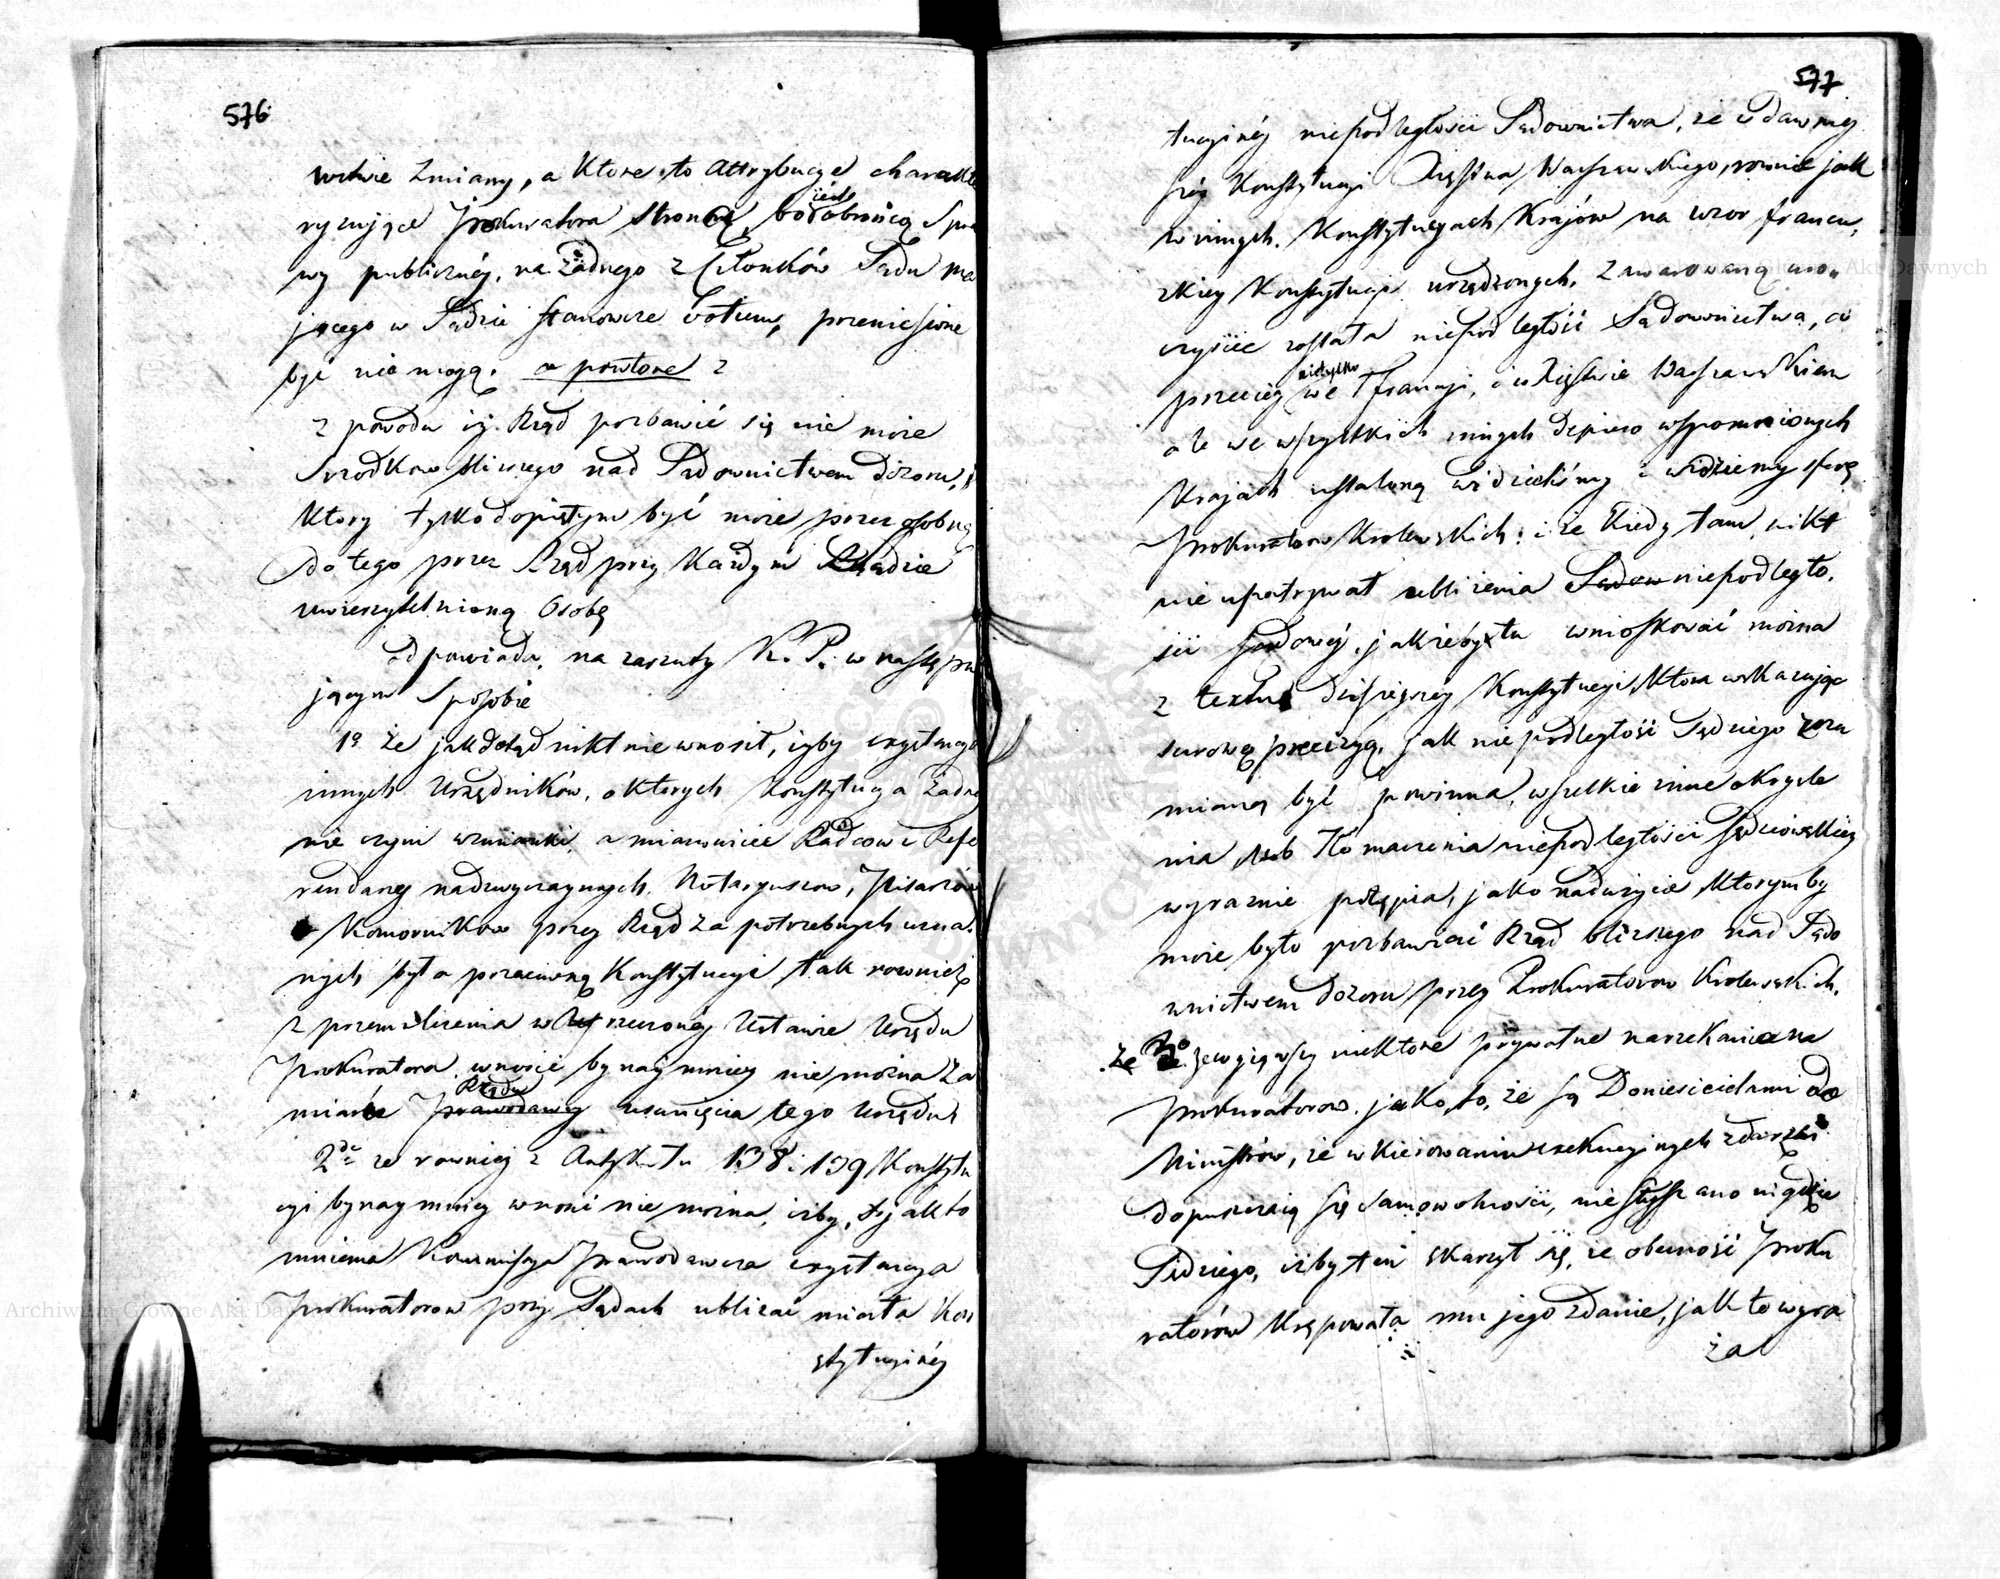 576
wśnie zmiany, a Ktore to Attrybucye charakte
ryzujące Prokuratora Stroną, bo iest obrońcą Spra
wy publiczney, na żadnego z Członków Sądu ma
jącego w Sądzie stanowcze votum, przeniesione
być nie mogą. a powtore z
z powodu iż Rząd pozbawić się nie może
Srzodkow bliższego nad Sądownictwem dozoru,
Ktory tylko dopiętym być może przez osobną
do tego przez Rząd przy Każdym Sądzie
uwierzytelnioną Osobę
odpowiada, na zarzuty K. P. w następu
jącym Sposobie
1o że jak dotąd nikt nie wnosił, iżby exystencya
innych Urzędników, o Ktorych Konstytucya żadney
nie czyni wzmianki, a mianowicie Radcow i Refe
rendarzy nadzwyczaynych, Notaryuszow, Pisarzów
Komornikow przez Rząd za potrzebnych uzna
nych była przeciwną Konstytucyi tak rownież
z przemilczenia w rzeczoney Ustawie Urzędu
Prokuratora, wnosić bynaymniey nie można za
miaru Rządu Prawodawcy usunięcia tego Urzędu
2de że rowniey z Artykułu 138 i 139 Konstytu
cyi bynaymniey wnosić nie można, iżby, jak to
mniema Kommissya Prawodawcza exystencya
Prokuratorow przy Sądach ubliżać miała Kon
stytucyiney
577
tucyiney niepodległości Sądownictwa, że w dawniey
szey Konstytucyi Xięstwa Warszawskiego, rownie jak
w innych Konstytucyach Krajów na wzor francu
zkiey Konstytucyi urządzonych, zawarowaną uro
czyście została niepodległość Sądownictwa, a
przeciey nietylko we Francyi, i w Xięstwie Warszawskiem
ale we wszystkich innych dopiero wspomnionych
Krajach ustaloną widzieliśmy i widziemy sferę
Prokuratorow Krolewskich: i że Kiedy tam nikt
nie upatrywał ubliżenia Sądow niepodległo
ści Sądowey, jakieby tu wnioskować można
z textu dzisieyszey Konstytucyi, Ktora wskazując
surową precizyą, jak niepodległość Sędziego rozu
mianą być powinna, wszelkie inne okryśle
nia lub tłomaczenia niepodległości Sędziowskiey
wyraźnie potępia, jako nadużycie, Ktorym by
może było pozbawiać Rząd bliższego nad Sądo
wnictwem dozoru przez Prokuratorow Krolewskich.
Że 3o zewziąwszy niektore prywatne narzekania na
Prokuratorow, jako to, że są Donosicielami do
Ministrów, że w kierowaniu exekucyinych zdarzeń
dopuszczaią się samowolności, nie słyszano nigdzie
Sędziego, iżby ten skarżył się, że obecność Proku
ratorów Krępowała mu jego zdanie, jak to wyra
ża